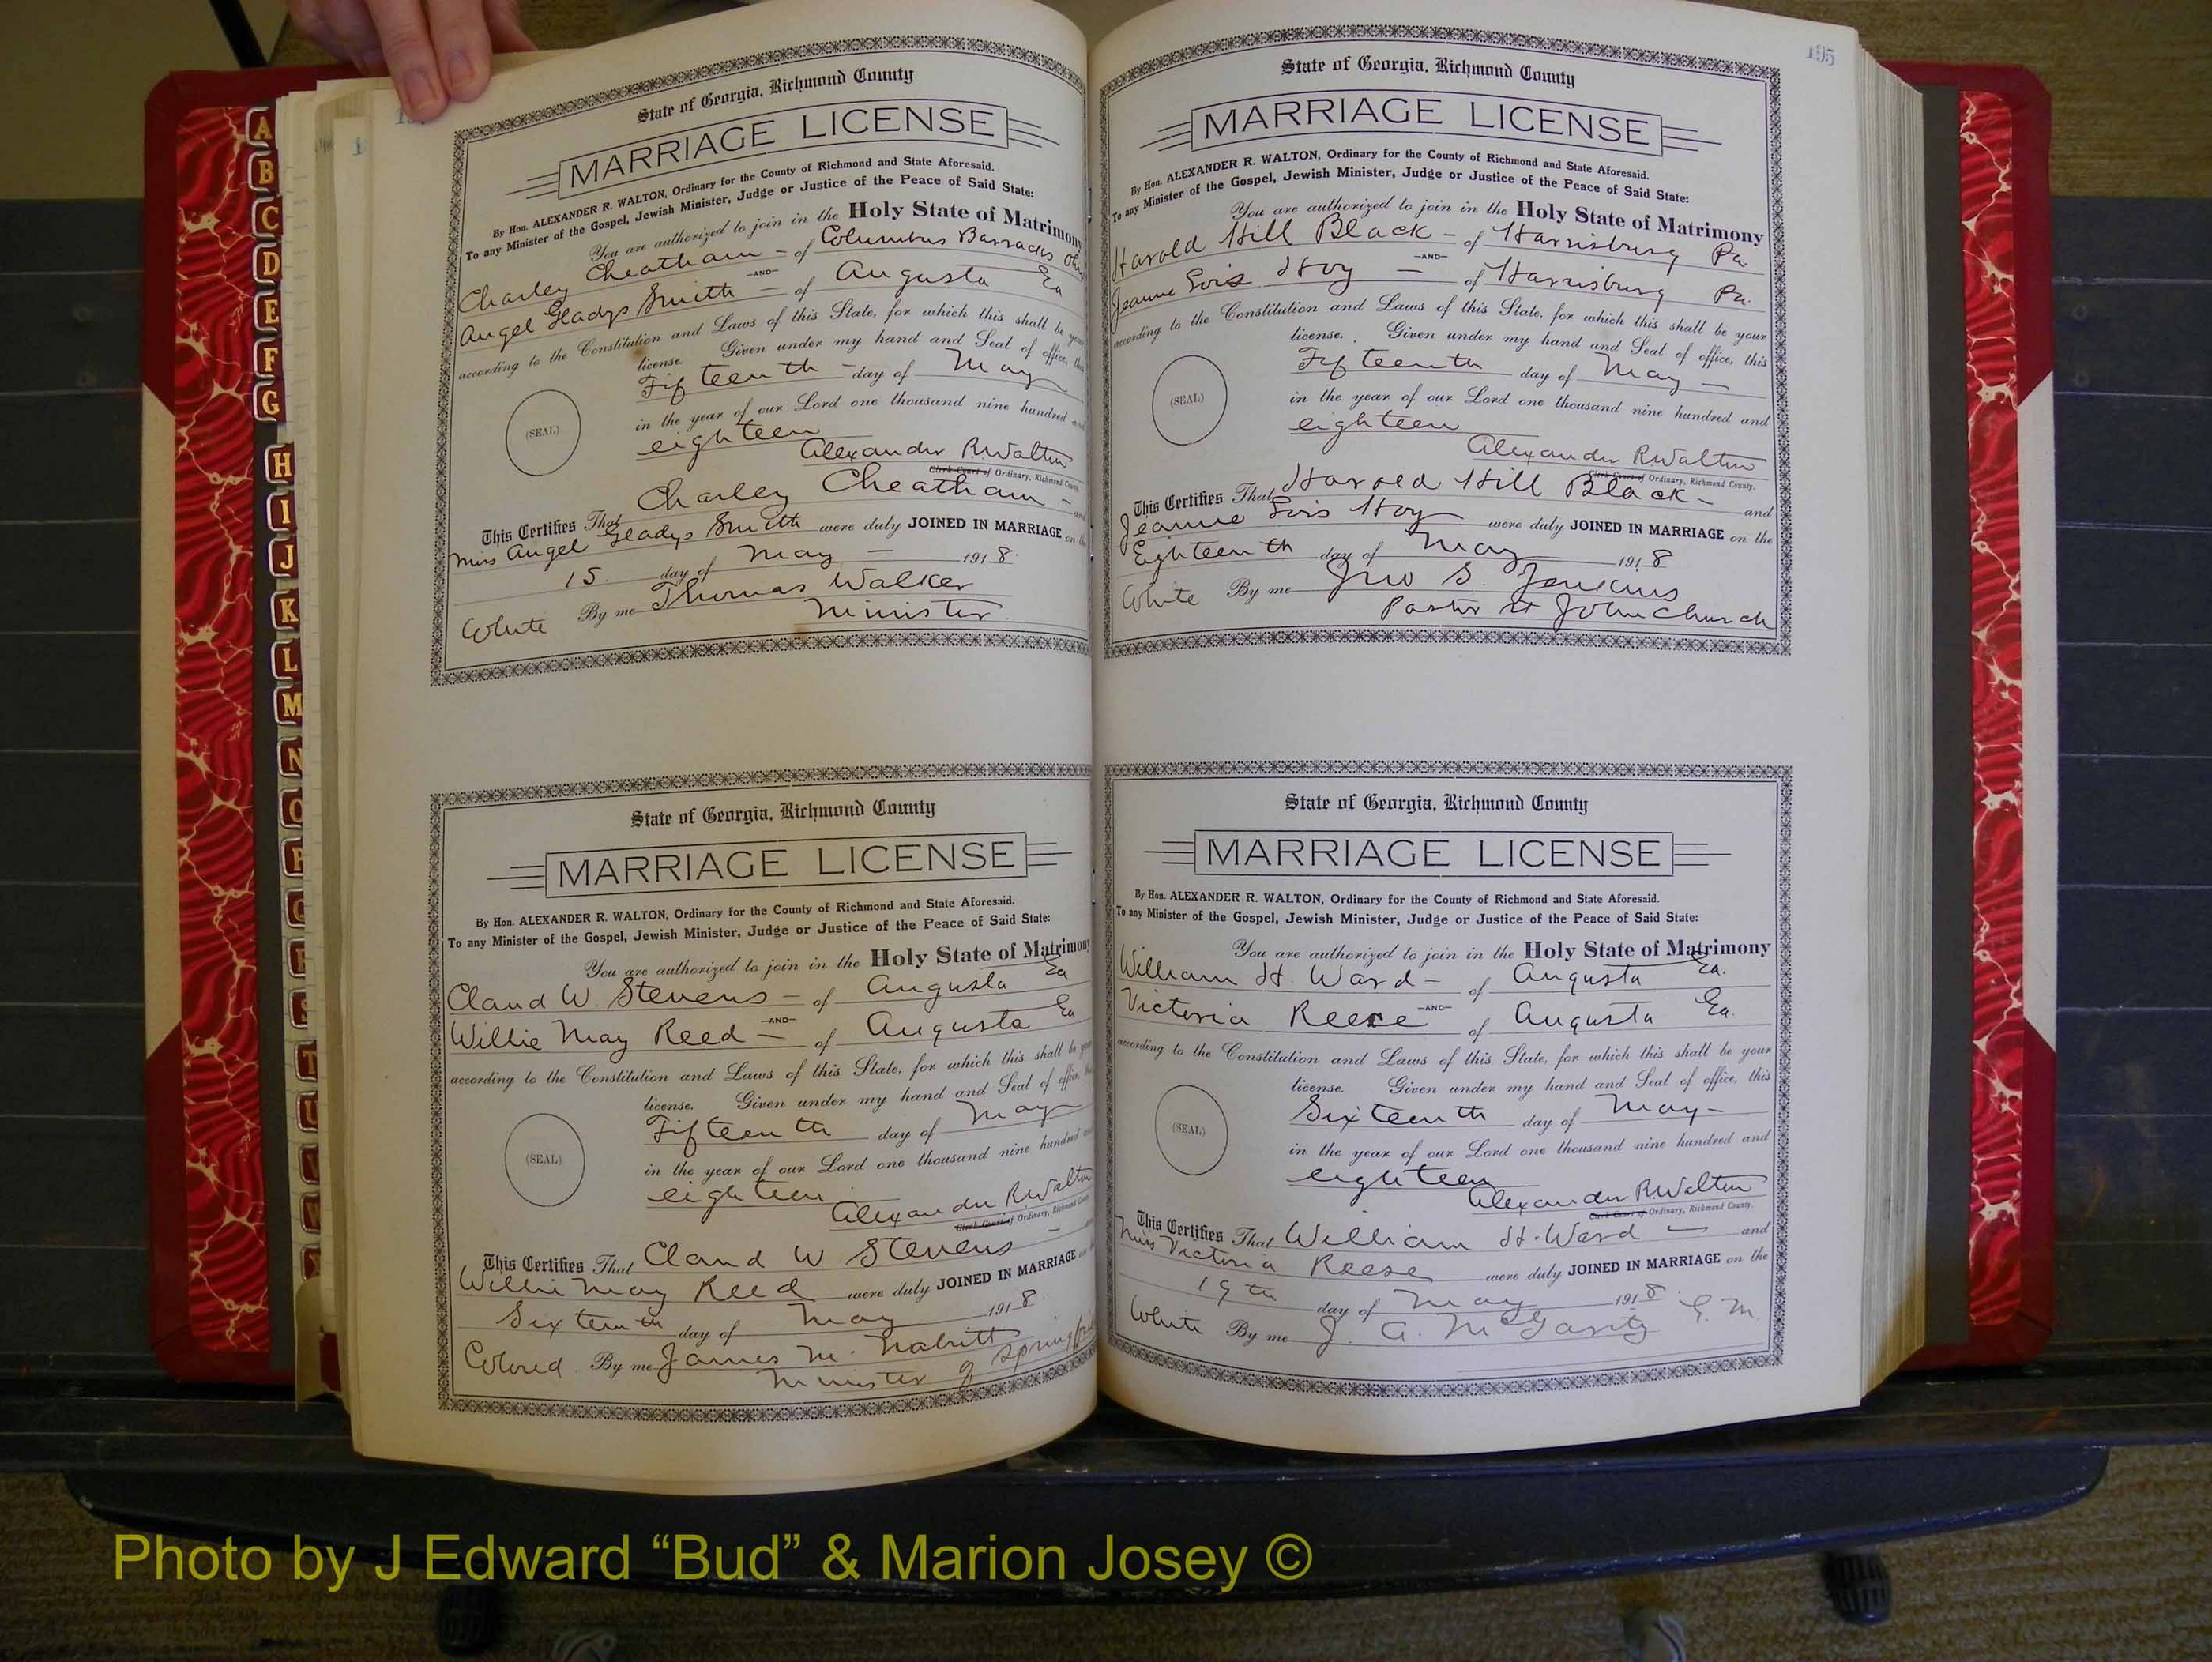 A
B
C
D
E
F
G
H
I
J
K
L
M
N
O
P
Q
R
S
T
U
V
W
State of Georgia, Richmond County
MARRIAGE LICENSE
By Hon. ALEXANDER R. WALTON, Ordinary for the County of Richmond and State Aforesaid.
To any Minister of the Gospel, Jewish Minister, Judge or Justice of the Peace of Said State:
You are authorized to join in the Holy State of Matrimony
Charley Cheatham - of Columbus Barracks
-AND-
Angel Gladys Smith - of Augusta Ga
according to the Constitution and Laws of this State, for which this shall be your
license. Given under my hand and Seal of office, this
Fifteenth - day of May
(SEAL)
in the year of our Lord one thousand nine hundred and
eighteen
Alexander R Walton
Clerk Court of Ordinary, Richmond County.
This Certifies That Charley Cheatham - and
Miss Angel Gladys Smith were duly JOINED IN MARRIAGE on the
15. day of May - 1918.
White By me Thomas Walker
Minister.
State of Georgia, Richmond County
MARRIAGE LICENSE
By Hon. ALEXANDER R. WALTON, Ordinary for the County of Richmond and State Aforesaid.
To any Minister of the Gospel, Jewish Minister, Judge or Justice of the Peace of Said State:
You are authorized to join in the Holy State of Matrimony
Claud W. Stevens - of Augusta Ga
-AND-
Willie May Reed - of Augusta Ga
according to the Constitution and Laws of this State, for which this shall be your
license. Given under my hand and Seal of office, this
Fifteenth day of May
(SEAL)
in the year of our Lord one thousand nine hundred and
eighteen
Alexander R Walton
Clerk Court of Ordinary, Richmond County.
This Certifies That Claud W Stevens -
Willie May Reed were duly JOINED IN MARRIAGE on
Sixteenth day of May 1918.
Colored. By me James M. Nabritt
Minister of Springfield
195
State of Georgia, Richmond County
MARRIAGE LICENSE
By Hon. ALEXANDER R. WALTON, Ordinary for the County of Richmond and State Aforesaid.
To any Minister of the Gospel, Jewish Minister, Judge or Justice of the Peace of Said State:
You are authorized to join in the Holy State of Matrimony
Harold Hill Black - of Harrisburg Pa.
-AND-
Jeanne Lois Hoy - of Harrisburg Pa.
according to the Constitution and Laws of this State, for which this shall be your
license. Given under my hand and Seal of office, this
Fifteenth day of May -
(SEAL)
in the year of our Lord one thousand nine hundred and
eighteen
Alexander R Walton
Clerk Court of Ordinary, Richmond County.
This Certifies That Harold Hill Black - and
Jeanne Lois Hoy were duly JOINED IN MARRIAGE on the
Eighteenth day of May 1918
White By me Jno S. Jenkins
Pastor St John Church
State of Georgia, Richmond County
MARRIAGE LICENSE
By Hon. ALEXANDER R. WALTON, Ordinary for the County of Richmond and State Aforesaid.
To any Minister of the Gospel, Jewish Minister, Judge or Justice of the Peace of Said State:
You are authorized to join in the Holy State of Matrimony
William H. Ward - of Augusta Ga.
-AND-
Victoria Reese of Augusta Ga.
according to the Constitution and Laws of this State, for which this shall be your
license. Given under my hand and Seal of office, this
Sixteenth day of May -
(SEAL)
in the year of our Lord one thousand nine hundred and
eighteen
Alexander R Walton
Clerk Court of Ordinary, Richmond County.
This Certifies That William H. Ward - and
Miss Victoria Reese were duly JOINED IN MARRIAGE on the
19th day of May 1918
White By me J. A. McGarity G. M.
Photo by J Edward “Bud” & Marion Josey ©